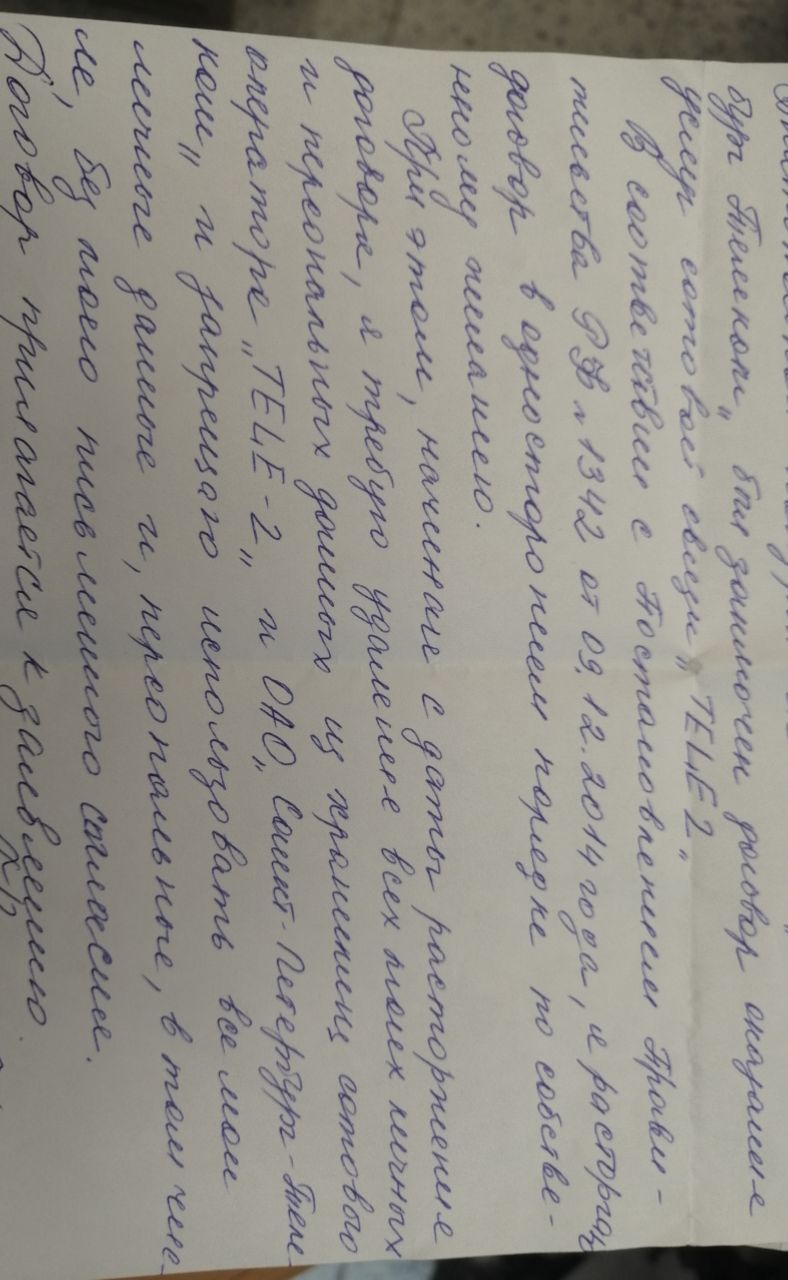 бург Телеком„ был заключен договор оказание
услуг сотовой связи „TELE2„
В соответствии с Постановлением Прави-
тельства РФ № 1342 от 09.12.2014 года, я расторгаю
договор в одностороннем порядке по собстве-
нному желанию.
При этом, начиная с даты расторжение
договора, я требую удаление всех моих личных
и персональных данных из хранилищ сотового
оператора „TELE-2„ и ОАО „Санкт-Петербург-Теле-
ком„ и запрещаю использовать все мои
личные данные и, персональные, в том чис-
ле, без моего письменного согласия.
Договор прилагается к заявлению.